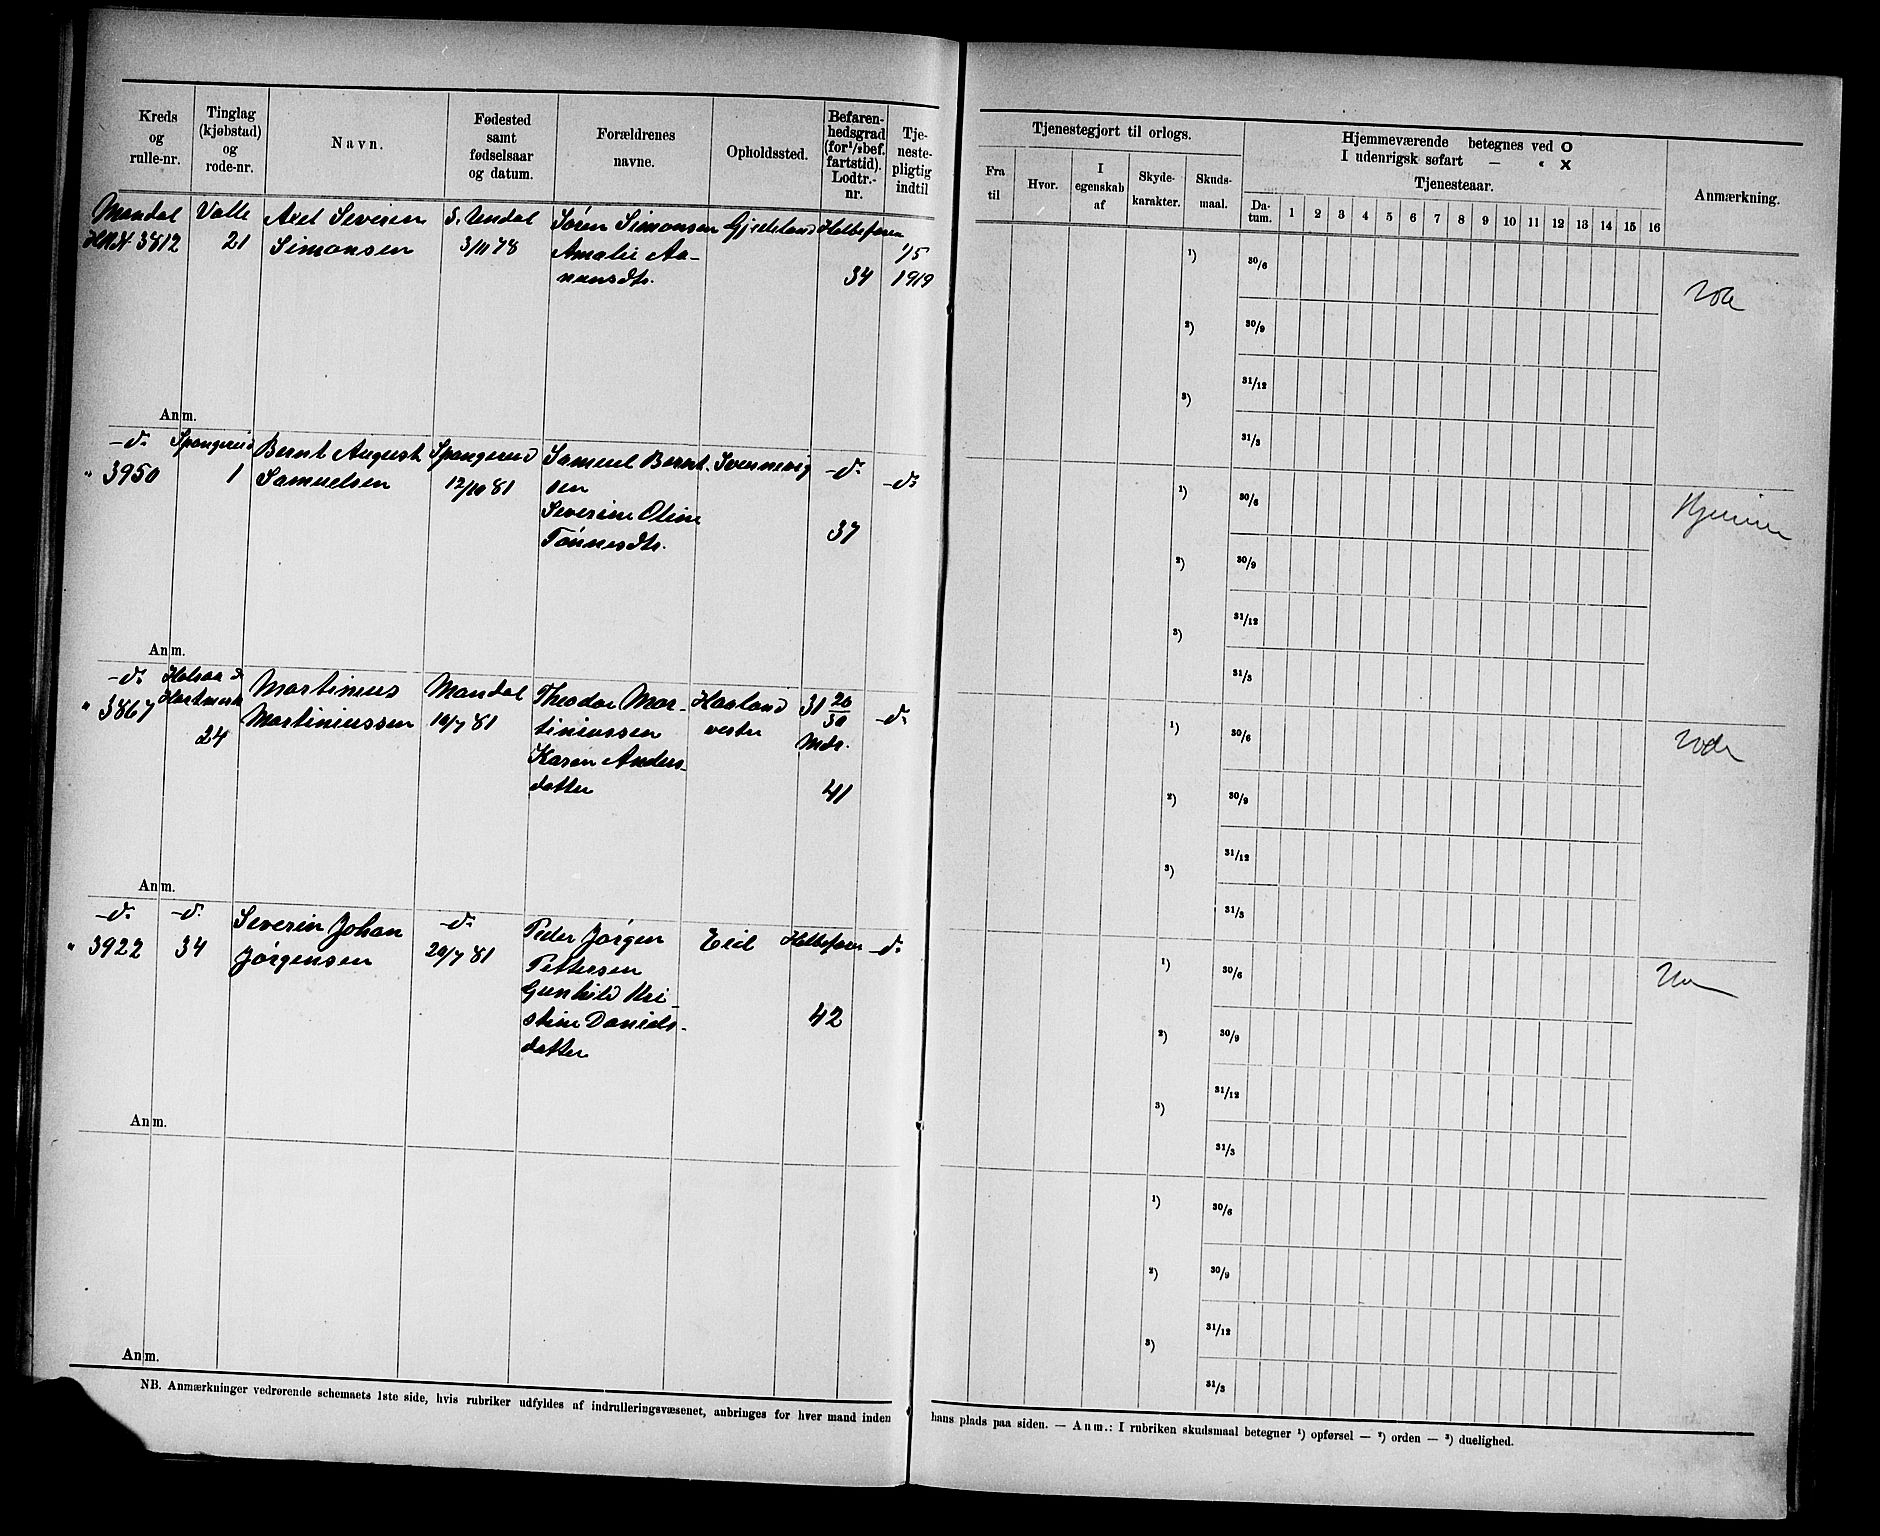 Kreds og rulle-nr.
Tinglag (kjøbstad) og rode-nr.
Navn.
Fødested samt fødselsaar og datum.
Forældrenes navne.
Opholdssted.
Befaren-hedsgrad (for ¹/₂bef. fartstid). Lodtr.-nr.
Tje-neste-pligtig indtil
Tjenestegjort til orlogs.
Fra til
Hvor.
I egenskab af
Skyde-karakter.
Skuds-maal.
Hjemmeværende betegnes ved O
I udenrigsk søfart — " X
Tjenesteaar.
Da-tum. 1 2 3 4 5 6 7 8 9 10 11 12 13 14 15 16
Anmærkning.
Mandal Valle Axel Severin S. Undal Søren Simonsen Gjedeland Halvbefaren
3812 21 Simonsen 3/11 78 Amalie Aa- 1/5
nensdtr. 34 1919
¹) 30/6
²) 30/9
31/12
³)
31/3
Anm.
-d- Spangereid Bernt August Spangereid Samuel Bernt- Svennevig -d- -d-
" 3950 1 Samuelsen 12/10 81 sen
Severine Oline
Tønnesdtr. 37
¹) 30/6 Hjemme
²) 30/9
31/12
³)
31/3
Anm.
-d- Halsaa &
" 3867 Hartmark Martinius Mandal Theodor Mar- Haaland 31 20/30 -d-
24 Martiniussen 10/7 81 tiniussen vestre Mdr.
Karen Anders-
datter 41
¹) 30/6 Ude
²) 30/9
31/12
³)
31/3
Anm.
-d- -d- Severin Johan -d- Peder Jørgen Halvbefaren -d-
" 3922 34 Jørgensen 20/7 81 Pettersen
Gunhild Kri-
stine Daniels- 42
datter
¹) 30/6
²) 30/9
31/12
³)
31/3
Anm.
¹) 30/6
²) 30/9
31/12
³)
31/3
Anm.
NB. Anmærkninger vedrørende schemaets 1ste side, hvis rubriker udfyldes af indrulleringsvæsenet, anbringes for hver mand inden hans plads paa siden. — Anm.: I rubriken skudsmaal betegner ¹) opførsel — ²) orden — ³) duelighed.